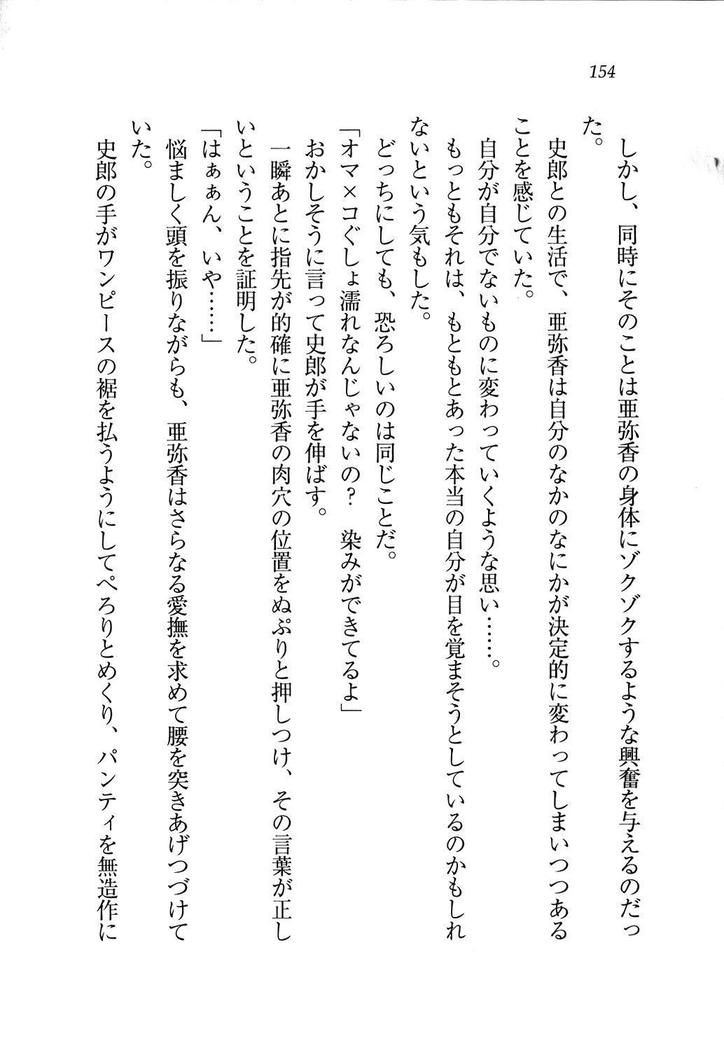 154
しかし、同時にそのことは亜弥香の身体にゾクゾクするような興奮を与えるのだっ
た。
史郎との生活で、亜弥香は自分のなかのなにかが決定的に変わってしまいつつある
ことを感じていた。
自分が自分でないものに変わっていくような思い……。
もっともそれは、もともとあった本当の自分が目を覚まそうとしているのかもしれ
ないという気もした。
どっちにしても、恐ろしいのは同じことだ。
「オマ×コぐしょ濡れなんじゃないの？　染みができてるよ」
おかしそうに言って史郎が手を伸ばす。
一瞬あとに指先が的確に亜弥香の肉穴の位置をぬぷりと押しつけ、その言葉が正し
いということを証明した。
「はぁぁん、いや……」
悩ましく頭を振りながらも、亜弥香はさらなる愛撫を求めて腰を突きあげつづけて
いた。
史郎の手がワンピースの裾を払うようにしてぺろりとめくり、パンティを無造作に